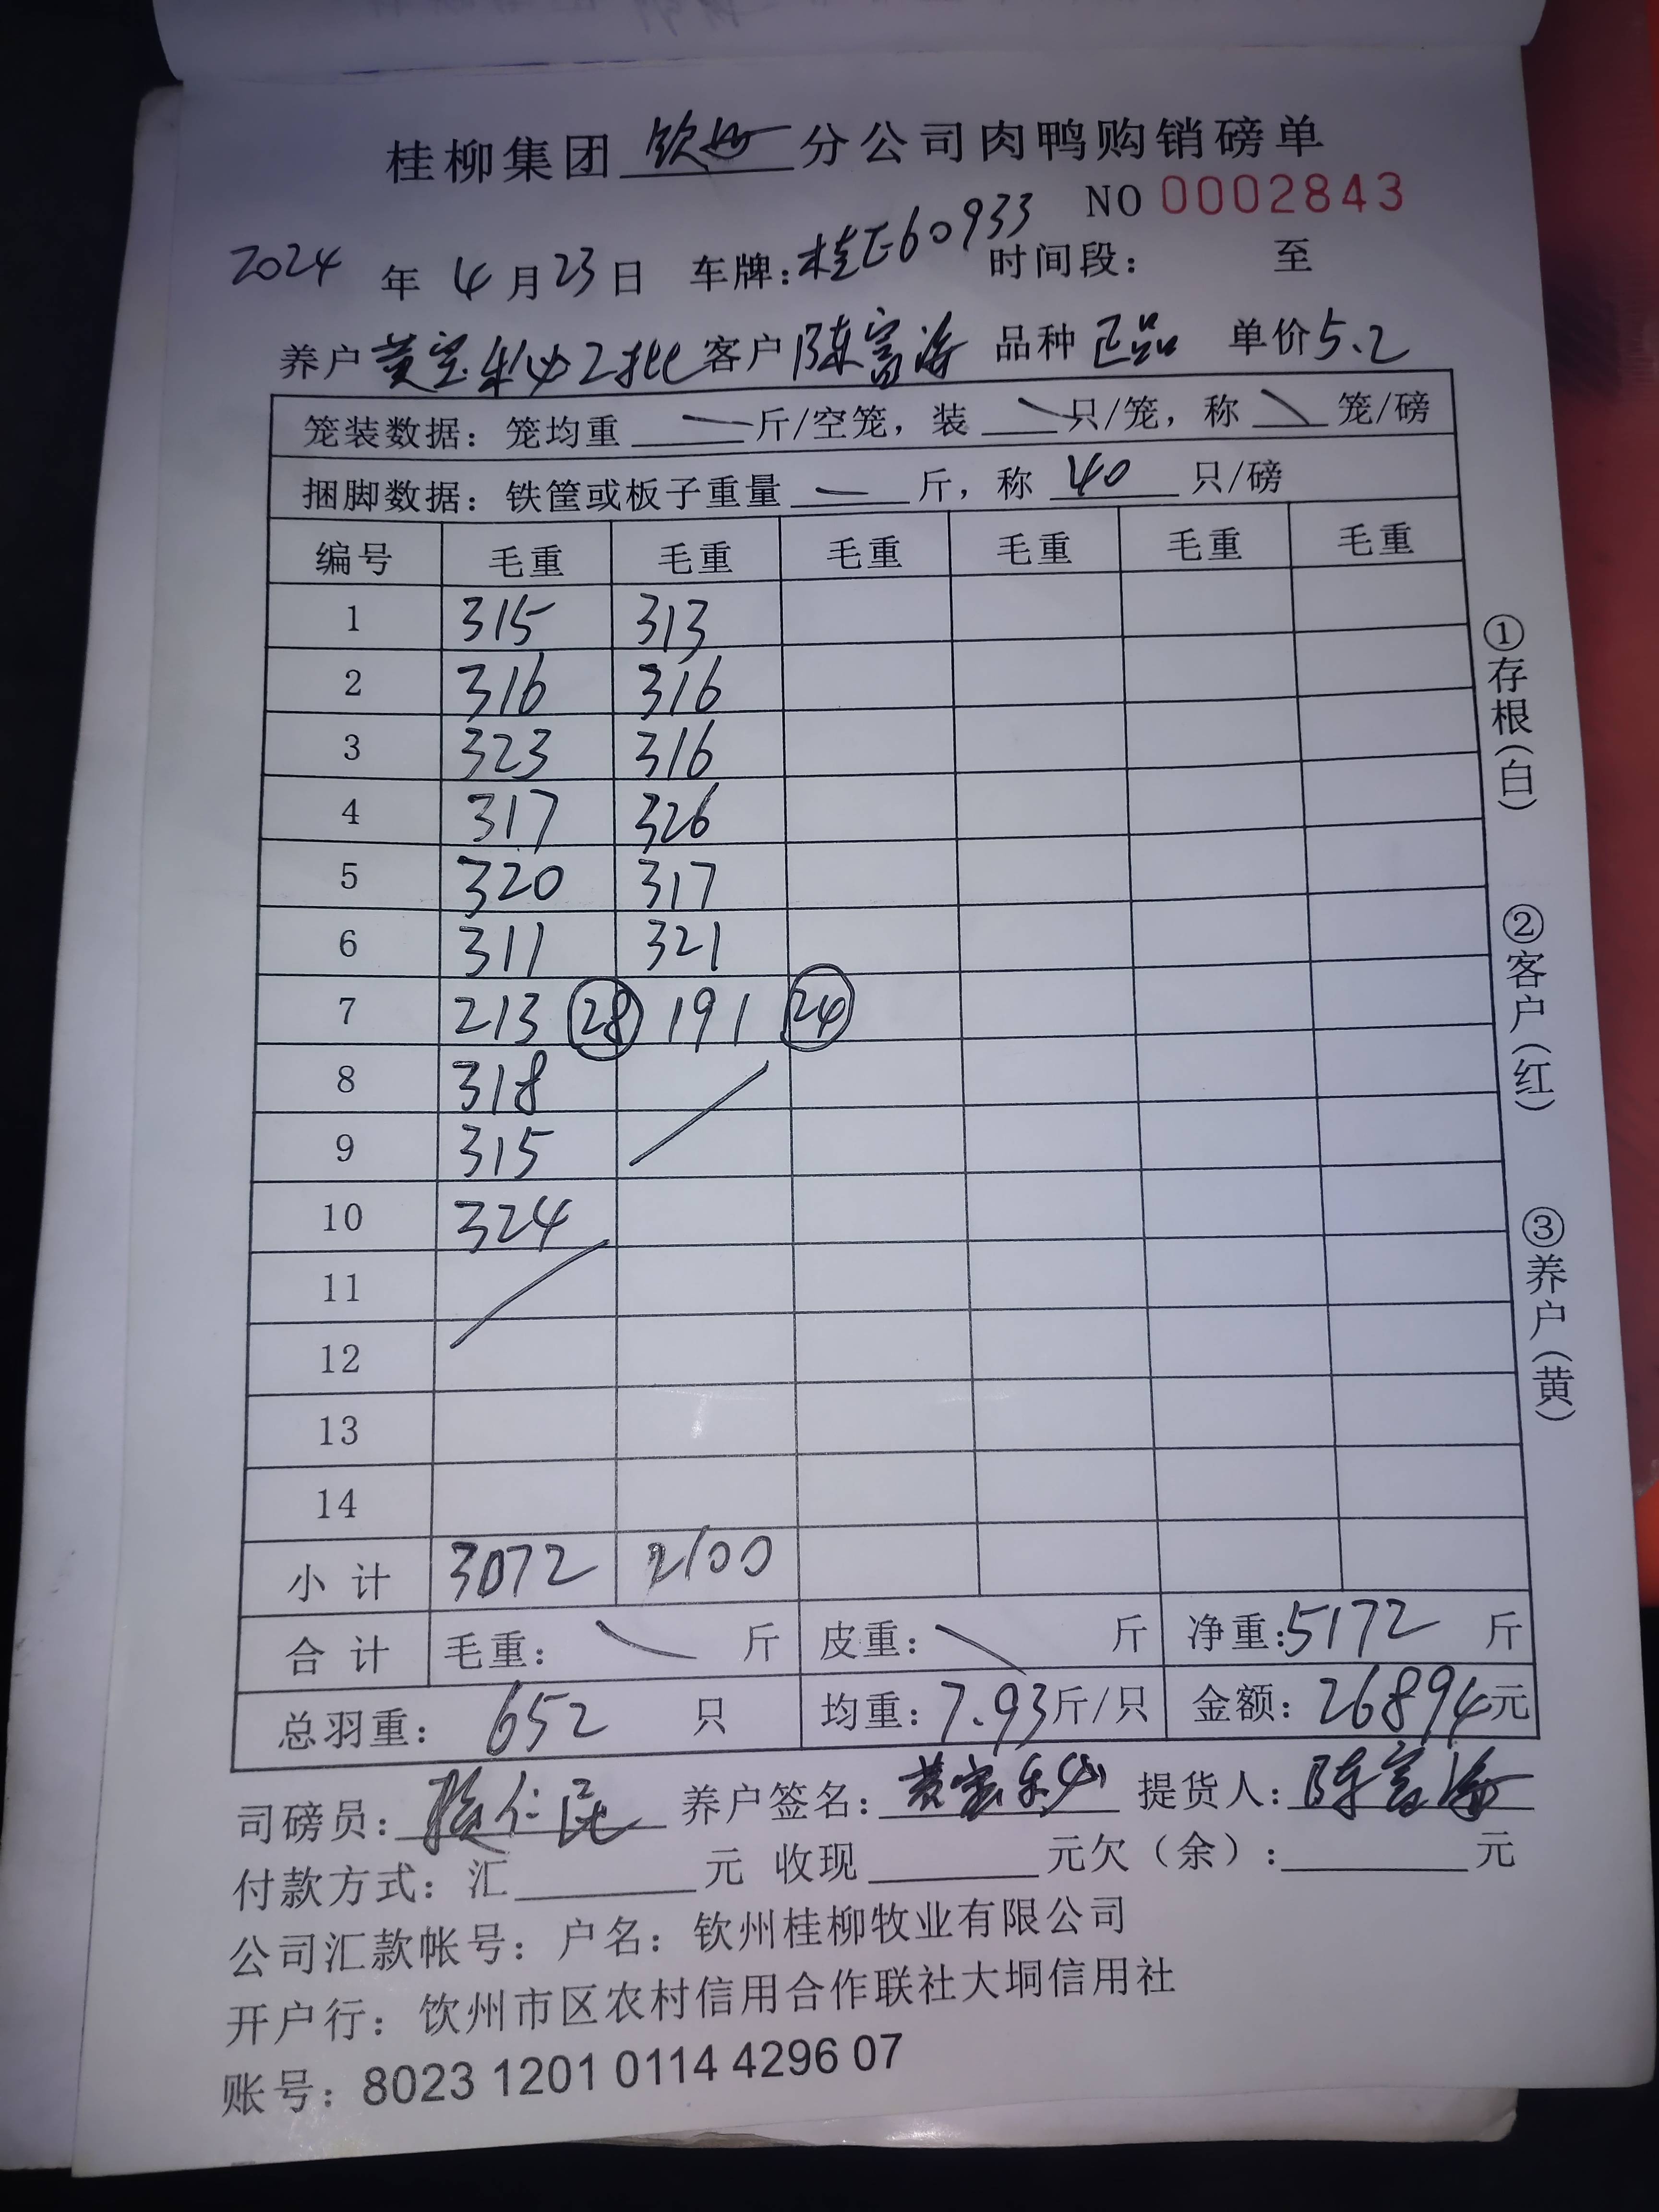 桂柳集团 钦州 分公司肉鸭购销磅单
NO 0002843
2024 年 4 月 23 日 车牌:桂E60933 时间段: 至
养户 黄宝 2批 客户 陈富海 品种 正品 单价 5.2
笼装数据: 笼均重 斤/空笼, 装 只/笼, 称 笼/磅
捆脚数据: 铁筐或板子重量 斤, 称 40 只/磅
编号 毛重 毛重 毛重 毛重 毛重 毛重
1 315 313
2 316 316
3 323 316
4 317 326
5 320 317
6 311 321
7 213 28 191 24
8 318
9 315
10 324
11
12
13
14
小 计 3072 2100
合 计 毛重: 斤 皮重: 斤 净重:5172 斤
总羽重: 652 只 均重:7.93斤/只 金额: 26894元
司磅员: 仁 养户签名: 黄宝 提货人: 陈富海
付款方式: 汇 元 收现 元欠（余）: 元
公司汇款帐号: 户名: 钦州桂柳牧业有限公司
开户行: 钦州市区农村信用合作联社大垌信用社
账号: 8023 1201 0114 4296 07
①存根(白)
②客户(红)
③养户(黄)